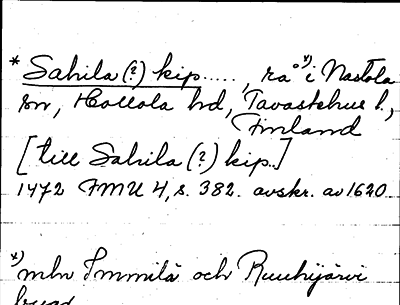 * Sahila (?) kip....., rå x) i Nastola
sn, Hollola hd, Tavastehus l.,
Finland
[till Sahila (?) kip..]
1472 FMU 4, s. 382. avskr. av 1620
x) mln Immilä och Ruuhijärvi
byar